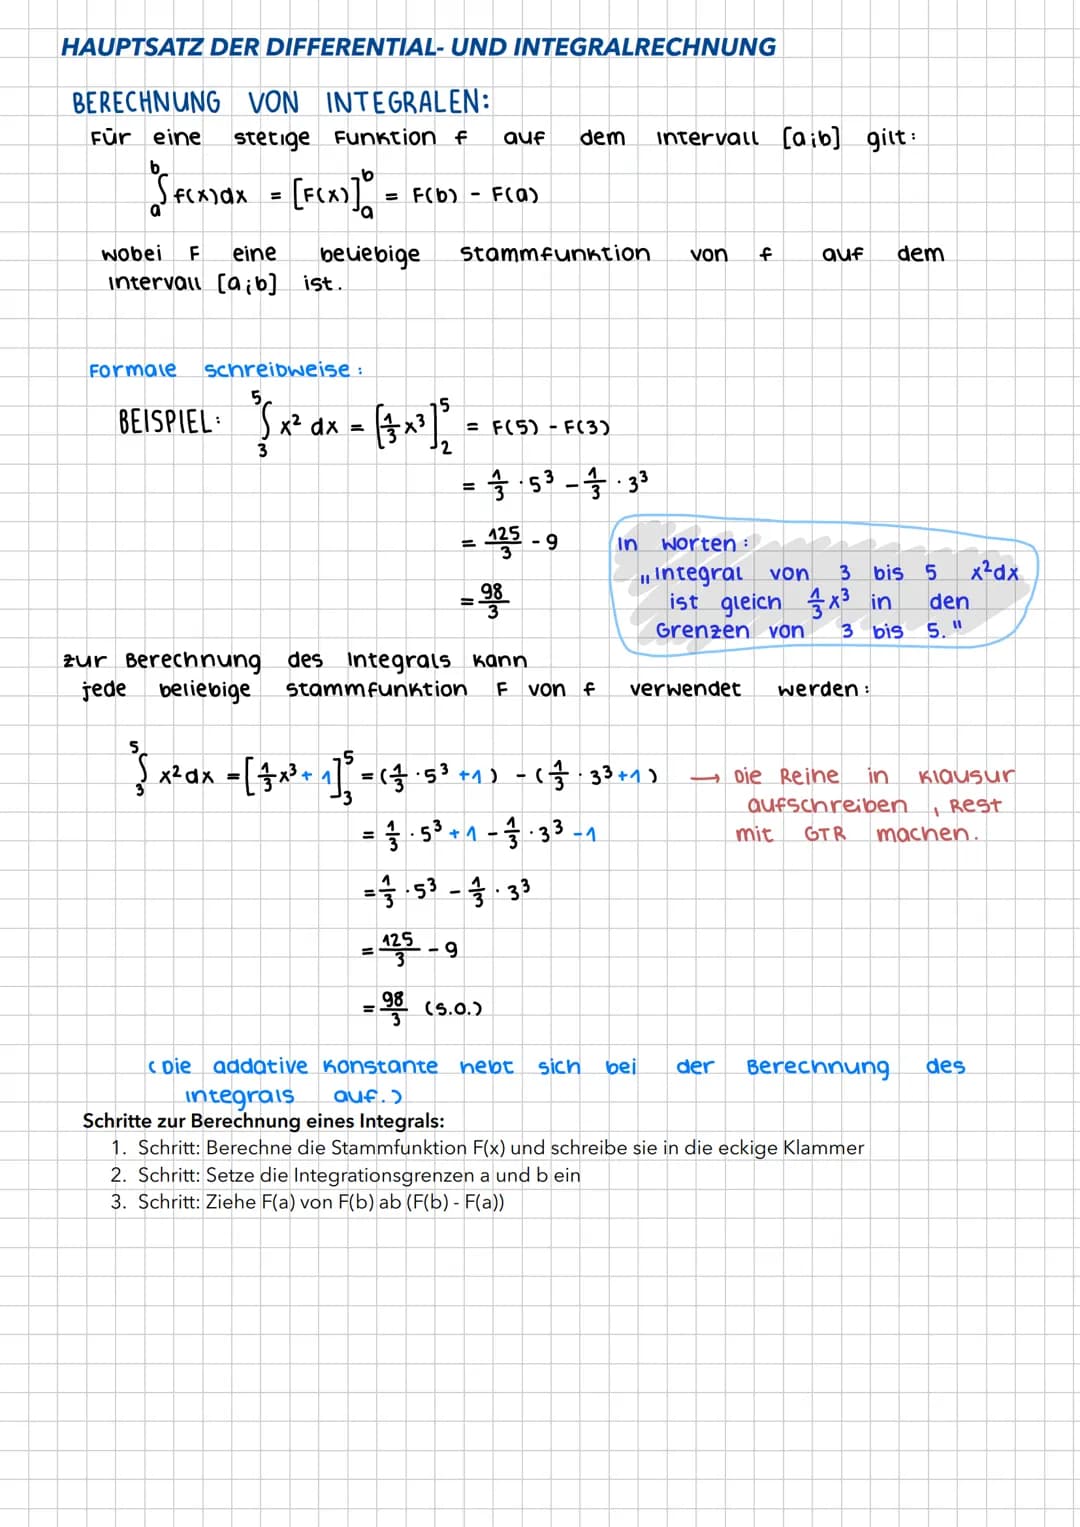 HAUPTSATZ DER DIFFERENTIAL- UND INTEGRALRECHNUNG
BERECHNUNG VON INTEGRALEN:
Für eine stetige Funktion f auf dem Intervall [a;b] gilt:
∫ₐᵇ f(x)dx = [F(x)]ₐᵇ = F(b) - F(a)
wobei F eine beliebige Stammfunktion von f auf dem
Intervall [a;b] ist.
Formale Schreibweise:
BEISPIEL: ∫₃⁵ x² dx = [1/3 x³]₂⁵ = F(5) - F(3)
= 1/3 · 5³ - 1/3 · 3³
= 125/3 - 9
= 98/3
In Worten:
„Integral von 3 bis 5 x²dx
ist gleich 1/3 x³ in den
Grenzen von 3 bis 5."
Zur Berechnung des Integrals kann
jede beliebige Stammfunktion F von f verwendet werden:
∫₃⁵ x²dx = [1/3 x³ + 1]₃⁵ = (1/3 · 5³ + 1) - (1/3 · 3³ + 1) → Die Reihe in Klausur
aufschreiben, Rest
= 1/3 · 5³ + 1 - 1/3 · 3³ - 1 mit GTR machen.
= 1/3 · 5³ - 1/3 · 3³
= 125/3 - 9
= 98/3 (s.o.)
(Die addative Konstante hebt sich bei der Berechnung des
Integrals auf.)
Schritte zur Berechnung eines Integrals:
1. Schritt: Berechne die Stammfunktion F(x) und schreibe sie in die eckige Klammer
2. Schritt: Setze die Integrationsgrenzen a und b ein
3. Schritt: Ziehe F(a) von F(b) ab (F(b) - F(a))